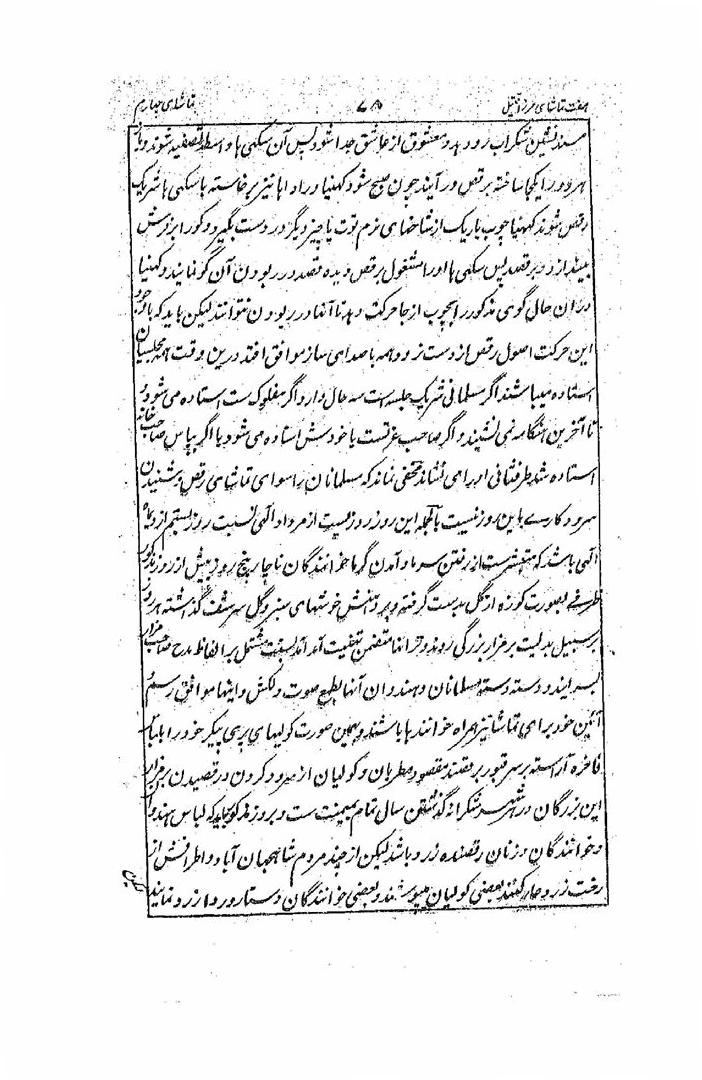 هفت تماشای مرزا قتیل ۷۵ تماشای چهارم
مسندنشین شکراب رو دهد و معشوق از عاشق جدا شود پس آن سکهی ها واسطه تصفیه شوند و باز
هر دو را یکجا ساخته برقص در آیند چون صبح شود کنهیا و رادها نیز برخاسته با سکهی ها شریک
رقص شوند کنهیا چوب باریک از شاخهای نرم توت یا چیز دیگر در دست بگیرد و کور ابر فرش
بیندازد و برقصد پس سکهی ها او را مشغول برقص دیده قصد در ربودن آن گو نمایند و کنهیا
دران حال گوی مذکور را بچوب از جا حرکت دهد تا آنها در ربودن نتوانند لیکن باید که باوجود
این حرکت اصول رقص از دست نرود و همه با صدای ساز موافق افتد درین وقت همه مجلسیان
استاده میباشند اگر مسلمانی شریک جلسه است سه حال دارد اگر مفلوک ست استاده می شود و
تا آخرین هنگامه نمی نشیند و اگر صاحب عزتست یا خودش استاده می شود یا اگر بپاس صاحب خانه
استاده شد طرفثانی او را می نشاند مخفی نماند که مسلمانان را سوای تماشای رقص و شنیدن
سرود کارے باین روز نیست بالجمله این روز روزیست از مرداد الٰهی نسبت روز بستم از دیماه
الٰهی باشد که متضمنست از رفتن سرما و آمدن گرما خوانندگان ناچار پنج روز پیش از روز مذکور
ظرفے بصورت کوزه از گل بدست گرفته و بر دهنش خوشهای سبز و گل سرشف گذاشته هر روز
بر سبیل بدلیت بر مزار بزرگی روند و ترانها متضمن تهنیت آمد آمد بسنت مشتمل بر الفاظ مدح صاحب مزار
بسرایند و دسته دسته مسلمانان و هندوان آنها بطمع صوت دلکش و اینها موافق رسم و
آئین خود برای تماشا نیز همراه خوانندها باشند و بهمین صورت کولیهای پری پیکر خود را بلباس
فاخره آراسته بر سر قبور برقصند مقصود مطربان و کولیان از سرود کردن و رقصیدن بر مزار
این بزرگان در شهر شکرانه گذشتن سال تمام بمیمنت ست و بروز مذکور باید که لباس هندوان
و خوانندگان و زنان رقصنده زرد باشد لیکن از چند مردم شاهجهان آباد و اطرافش از
رخت زرد عار کنند بعضی کولیان میپوشند و بعضی خوانندگان دستار و ردا زرد نمایند